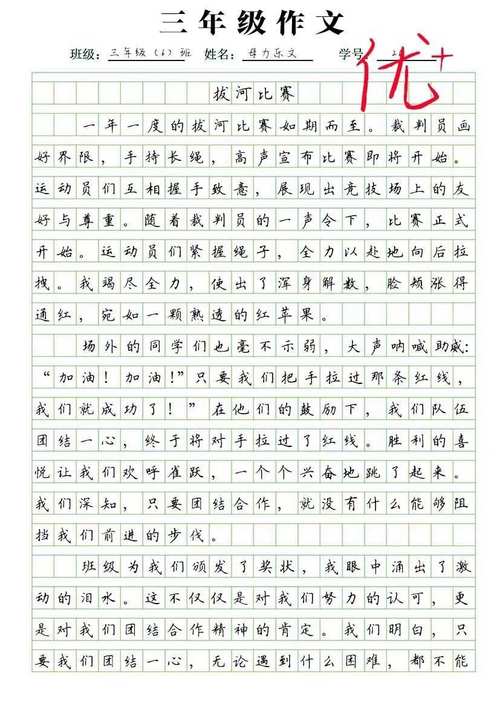 三年级作文
班级：三年级（6）班 姓名：力乐文 学号 2
优+
拔河比赛
一年一度的拔河比赛如期而至。裁判员画
好界限，手持长绳，高声宣布比赛即将开始。
运动员们互相握手致意，展现出竞技场上的友
好与尊重。随着裁判员的一声令下，比赛正式
开始。运动员们紧握绳子，全力以赴地向后拉
拽。我竭尽全力，使出了浑身解数，脸颊涨得
通红，宛如一颗熟透的红苹果。
场外的同学们也毫不示弱，大声呐喊助威：
“加油！加油！”只要我们把手拉过那条红线，
我们就成功了！”在他们的鼓励下，我们队伍
团结一心，终于将对手拉过了红线。胜利的喜
悦让我们欢呼雀跃，一个个兴奋地跳了起来。
我们深知，只要团结合作，就没有什么能够阻
挡我们前进的步伐。
班级为我们颁发了奖状，我眼中涌出了激
动的泪水。这不仅仅是对我们努力的认可，更
是对我们团结合作精神的肯定。我们明白，只
要我们团结一心，无论遇到什么困难，都不能